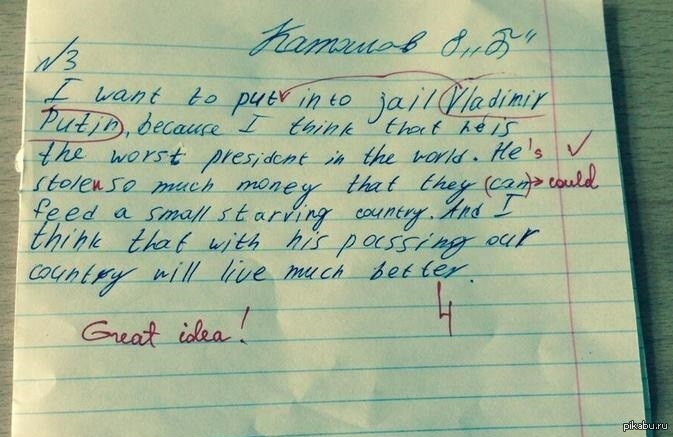 Катошлов 8 „Б"
№3
I want to put into jail Vladimir
Putin, because I think that he is
the worst president in the world. He's ✓
stolen so much money that they (can) could
feed a small starving country. And I
think that with his passing our
country will live much better.
Great idea! 4
pikabu.ru